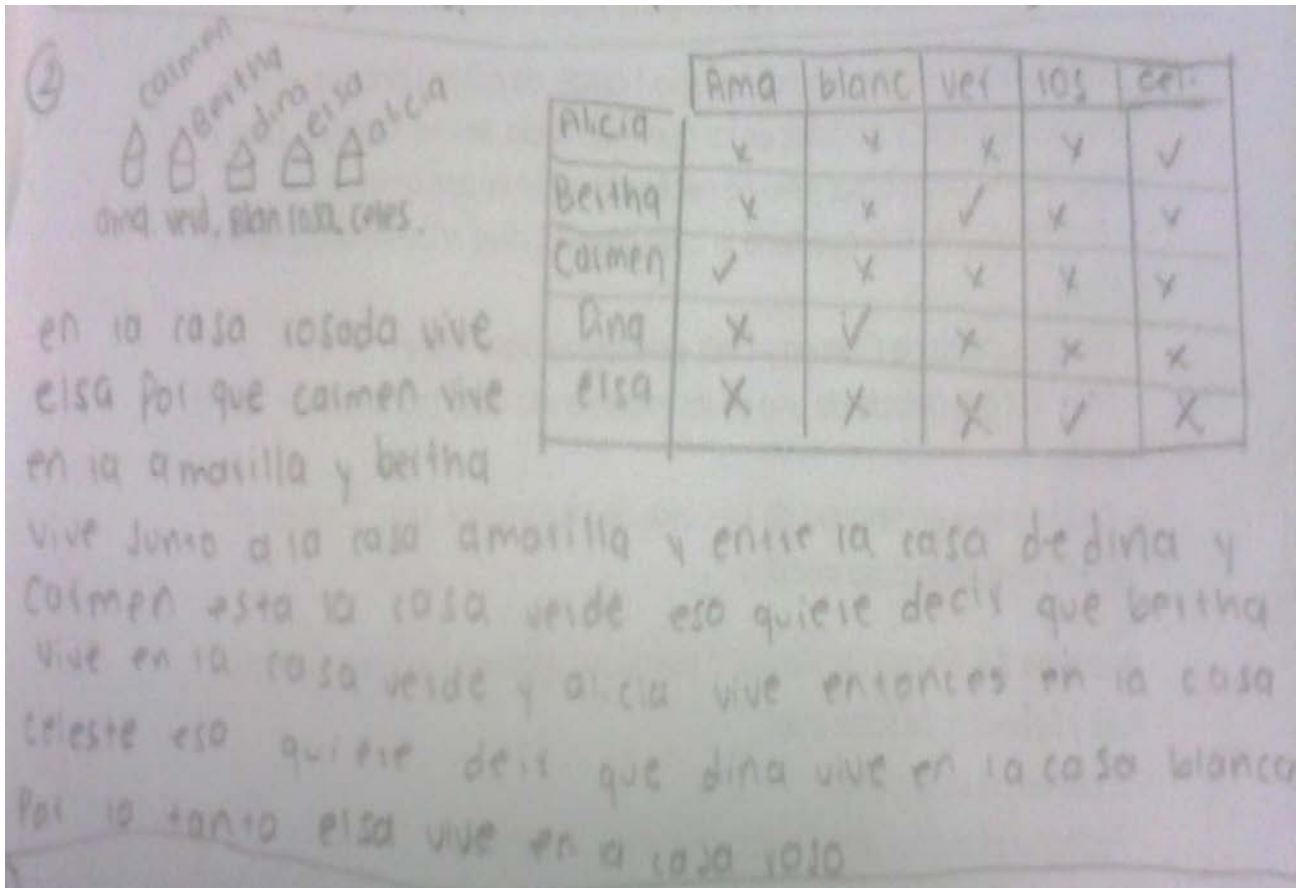 ②
Carmen
Bertha
dina
elsa
alicia
ama. verd. Blan rosa. celes.
Ama blanc ver ros cel.
Alicia x x x x ✓
Bertha x x ✓ x x
Carmen ✓ x x x x
Dina x ✓ x x x
elsa x x x ✓ x
en la casa rosada vive
elsa Por que carmen vive
en la amarilla y bertha
vive Junto a la casa amarilla y entre la casa de dina y
Carmen esta la casa verde eso quiere decir que bertha
vive en la casa verde y alicia vive entonces en la casa
celeste eso quiere decir que dina vive en la casa blanca
Por lo tanto elsa vive en a casa roso